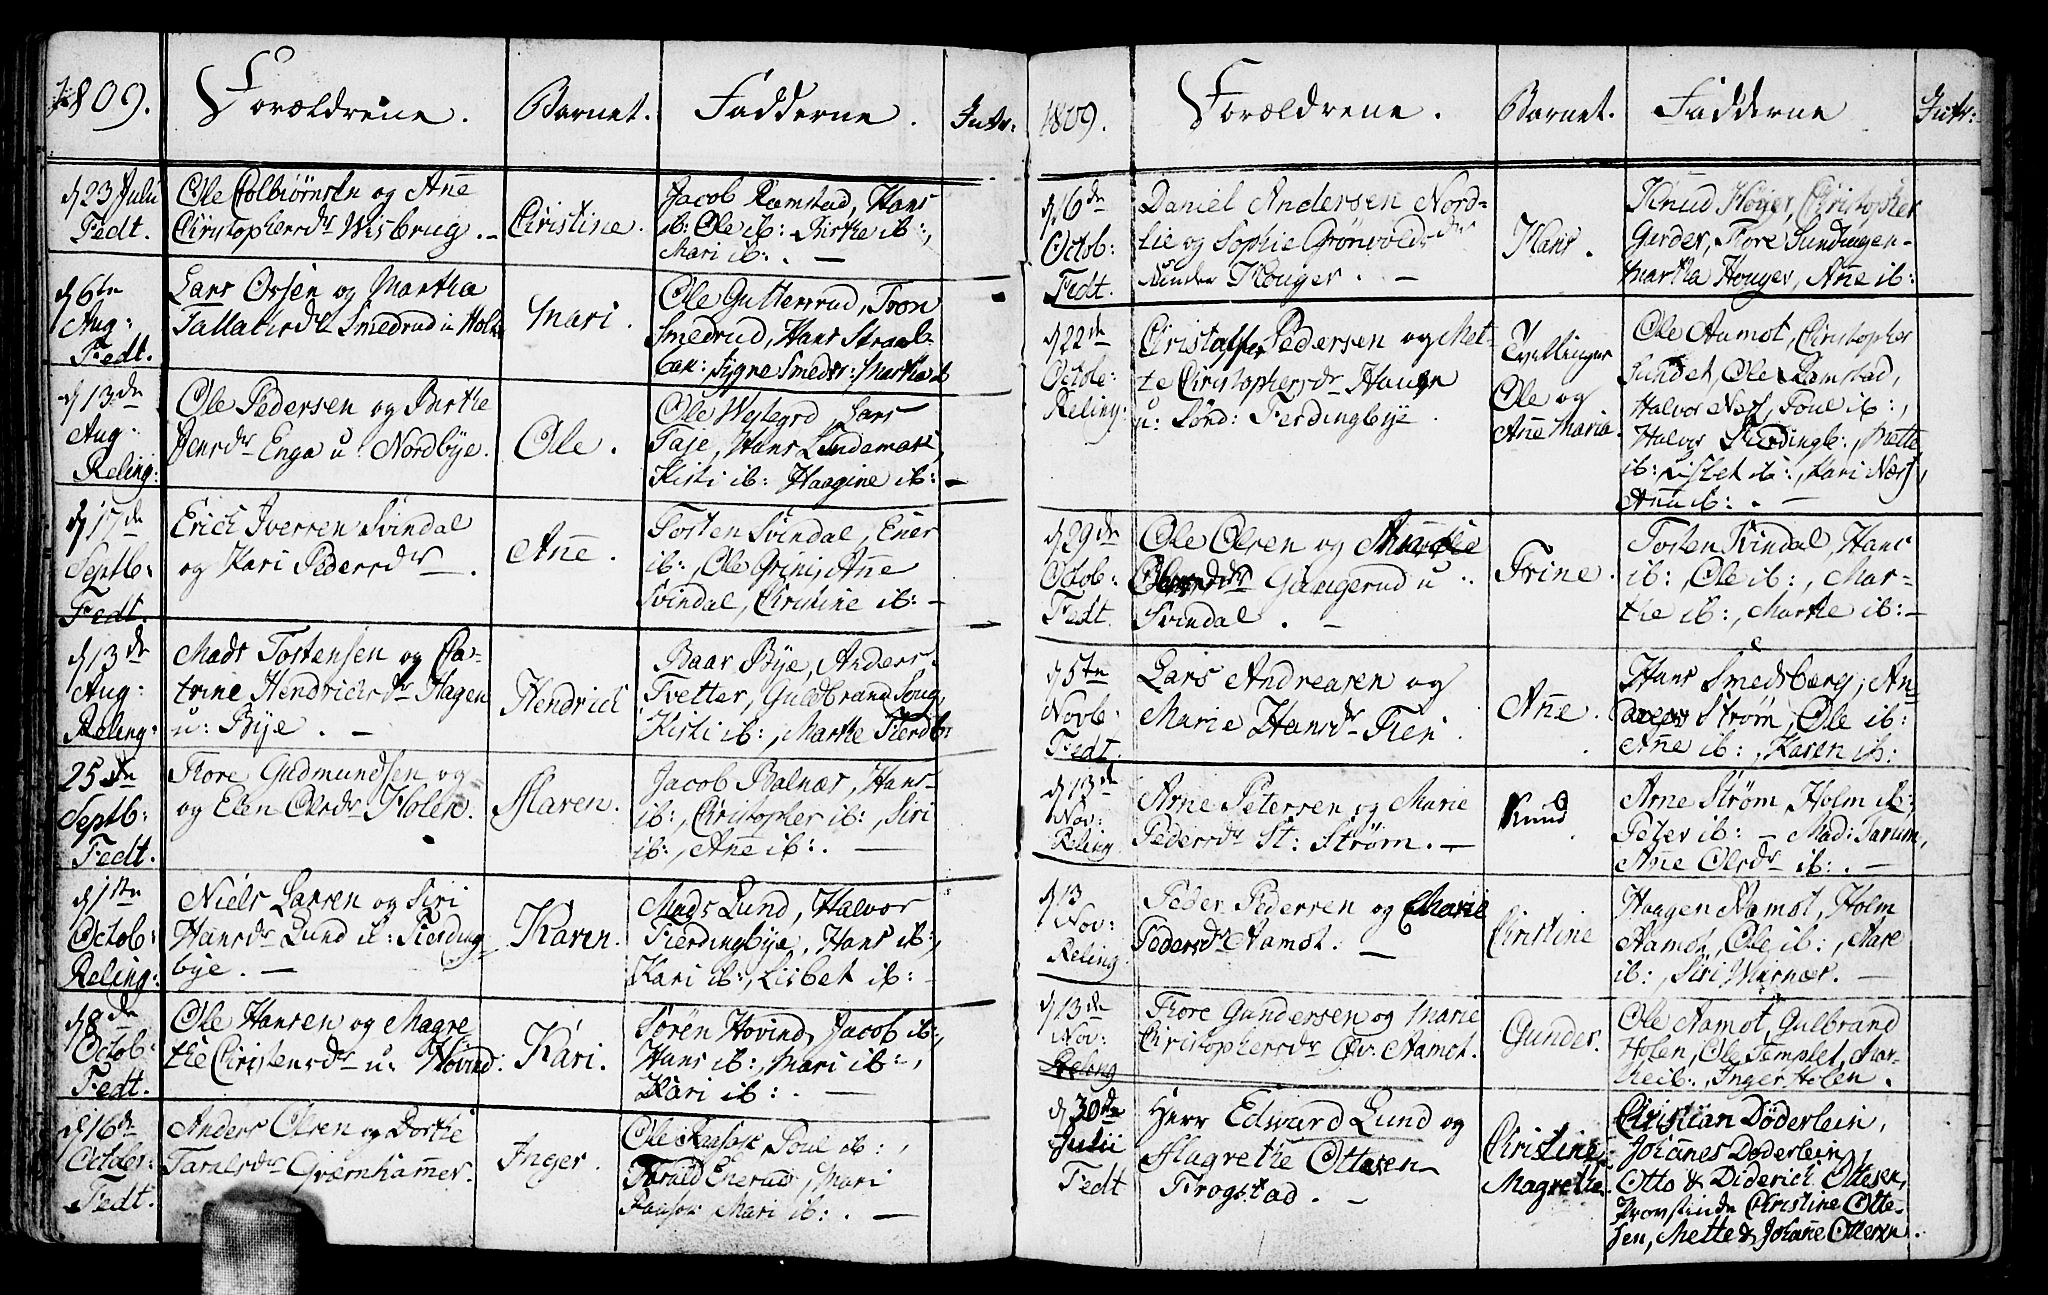 1809. Forældrene. Barnet. Fadderne. Intr:
d 23 Julii
Fedt.
Ole Colbiørnsen og Añe
Christophersdr Wisbrug. -
Christine.
Jacob Ramstad, Hans
ib: Ole ib: Birthe ib:,
Mari ib: . -
d 6te
Aug:
Fedt.
Lars Olsen og Martha
Tallaksdr Smedrud u Hole
Mari.
Ole Guttersrud, Tron
Smedrud, Hans
Sygne Smedsr: Martha ib
d 13de
Aug:
Reling:
Ole Pedersen og Birthe
Jensdr Enga u Nordbye.
Ole.
Ole Lars
Taje, Hans Lindemark,
Kisti ib: Haagine ib:
d 17de
Septb:
Fedt.
Erich Iversen Svindal
og Kari Pedersdr .
Añe.
Tosten Svindal, Ener
ib:, Ole Grini, Añe
Svindal, Christine ib: -
d 13de
Aug:
Reling:
Mads Tostensen og Ca-
trine Hendrichsdr Hagen
u: Bye . -
Hendrich
Baar Bye, Anders
Tvetter, Guldbrand Soug,
Kisti ib:, Marthe Fierdb:
25de
Septb:
Fedt.
Tore Gudmundsen og
og Elen Olsdr Holen.
Karen.
Jacob Balnær, Hans
ib:, Christopher ib:, Siri
ib:, Añe ib: . -
d 1ste
Octob:
Reling:
Niels Larsen og Siri
Hansdr Lund u: Fierding
bye. -
Karen.
Mads Lund, Halvor
Fierdingbye, Hans ib:,
Kari ib:, Lisbet ib:
d 8de
Octob:
Fedt.
Ole Hansen og Magre
the Christensdr u: Hovind.
Kari.
Søren Hovind, Jacob ib:,
Hans ib:, Mari ib:,
Kari ib: . -
d 16de
Octber:
Fedt.
Anders Olsen og Dorthe
Taralsdr Grønhamer.
Inger.
Ole Poul ib:,
Tarald Enerud, Mari
Mari ib: . -
1809. Forældrene. Barnet. Fadderne Intr:
d, 6de
Octob:
Fedt.
Daniel Andersen Nord-
lie og Sophie Grønvoldsdr
under Houger . -
Hans.
Knud Høyer, Christopher
Gerder, Tore Sundingen
Martha Houger, Añe ib:
d 22de
Octob:
Reling:
Christopher Pedersen og Met-
te Christophersdr Haugen
u: Sønd: Ferdingbye .
Tvillinger
Ole og
Añe Maria
Ole Aamot, Christopher
Sundet, Ole Ramstad,
Halvor Næss, Poul ib:,
Halvor Fierdingb:, Mette
ib: Lisbet ib:, Kari Næss,
Añe ib: . -
d 29de
Octob:
Fedt.
Ole Olsen og
Gangerud u
Svindal . -
Trine.
Tosten Svindal, Hans
ib:, Ole ib:, Mar-
the ib:, Marthe ib: -
d 5te
Novb:
Fedt.
Lars Andreasen og
Marie Hansdr Tien .
Añe.
Hans Smedsberg, An-
dreas Strøm, Ole ib:
Añe ib:, Karen ib:
d 13de
Nov:
Reling
Arne Petersen og Marie
Pedersdr St: Strøm. -
Knud
Arne Strøm, Holm ib:,
Peter ib: - Mad: Tarum,
Añe Olsdr ib: . -
d 13
Nov:
Reling
Peder Pedersen og Marie
Pedersdr Aamot. -
Christine
Haagen Aamot, Holm
Aamot, Ole ib:, Aase
ib:, Siri Wirnær. -
d 13de
Nov:
Reling
Tore Gundersen og Marie
Christophersdr Øv: Aamot.
Gunder.
Ole Aamot, Gulbrand
Holen, Ole Templet, Mar-
the ib:, Inger Holen .
d 30te
Julii
Fedt
Herr Edward Lund og
Magrethe Ottesen
Frogstad . -
Christine
Magrethe.
Christian Døderlein,
Johañes Døderlein,
Otto & Diderich Ottesen,
Provstinde Christine Otte-
sen, Mette & Johañe Ottesen .